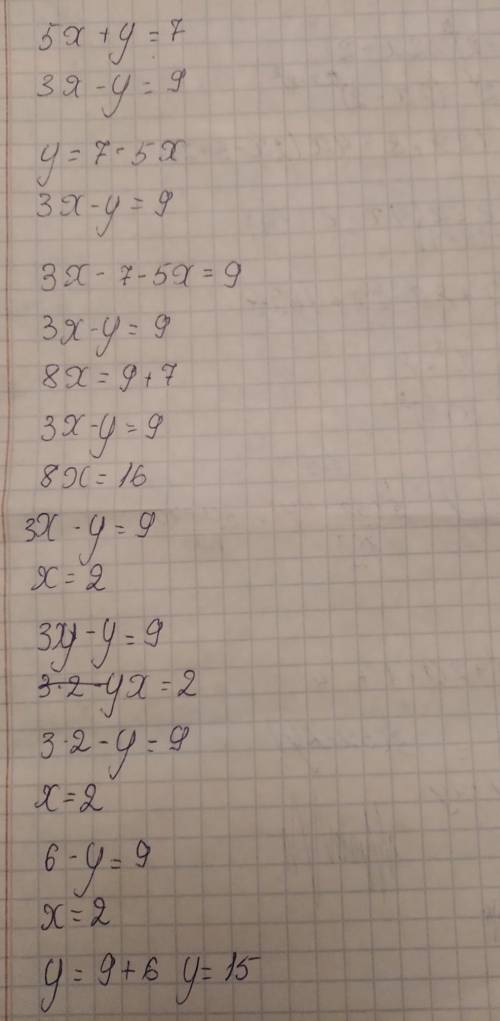 5x + y = 7
3x - y = 9
y = 7 - 5x
3x - y = 9
3x - 7 - 5x = 9
3x - y = 9
8x = 9 + 7
3x - y = 9
8x = 16
3x - y = 9
x = 2
3xy - y = 9
3·2 - yx = 2
3·2 - y = 9
x = 2
6 - y = 9
x = 2
y = 9 + 6 y = 15